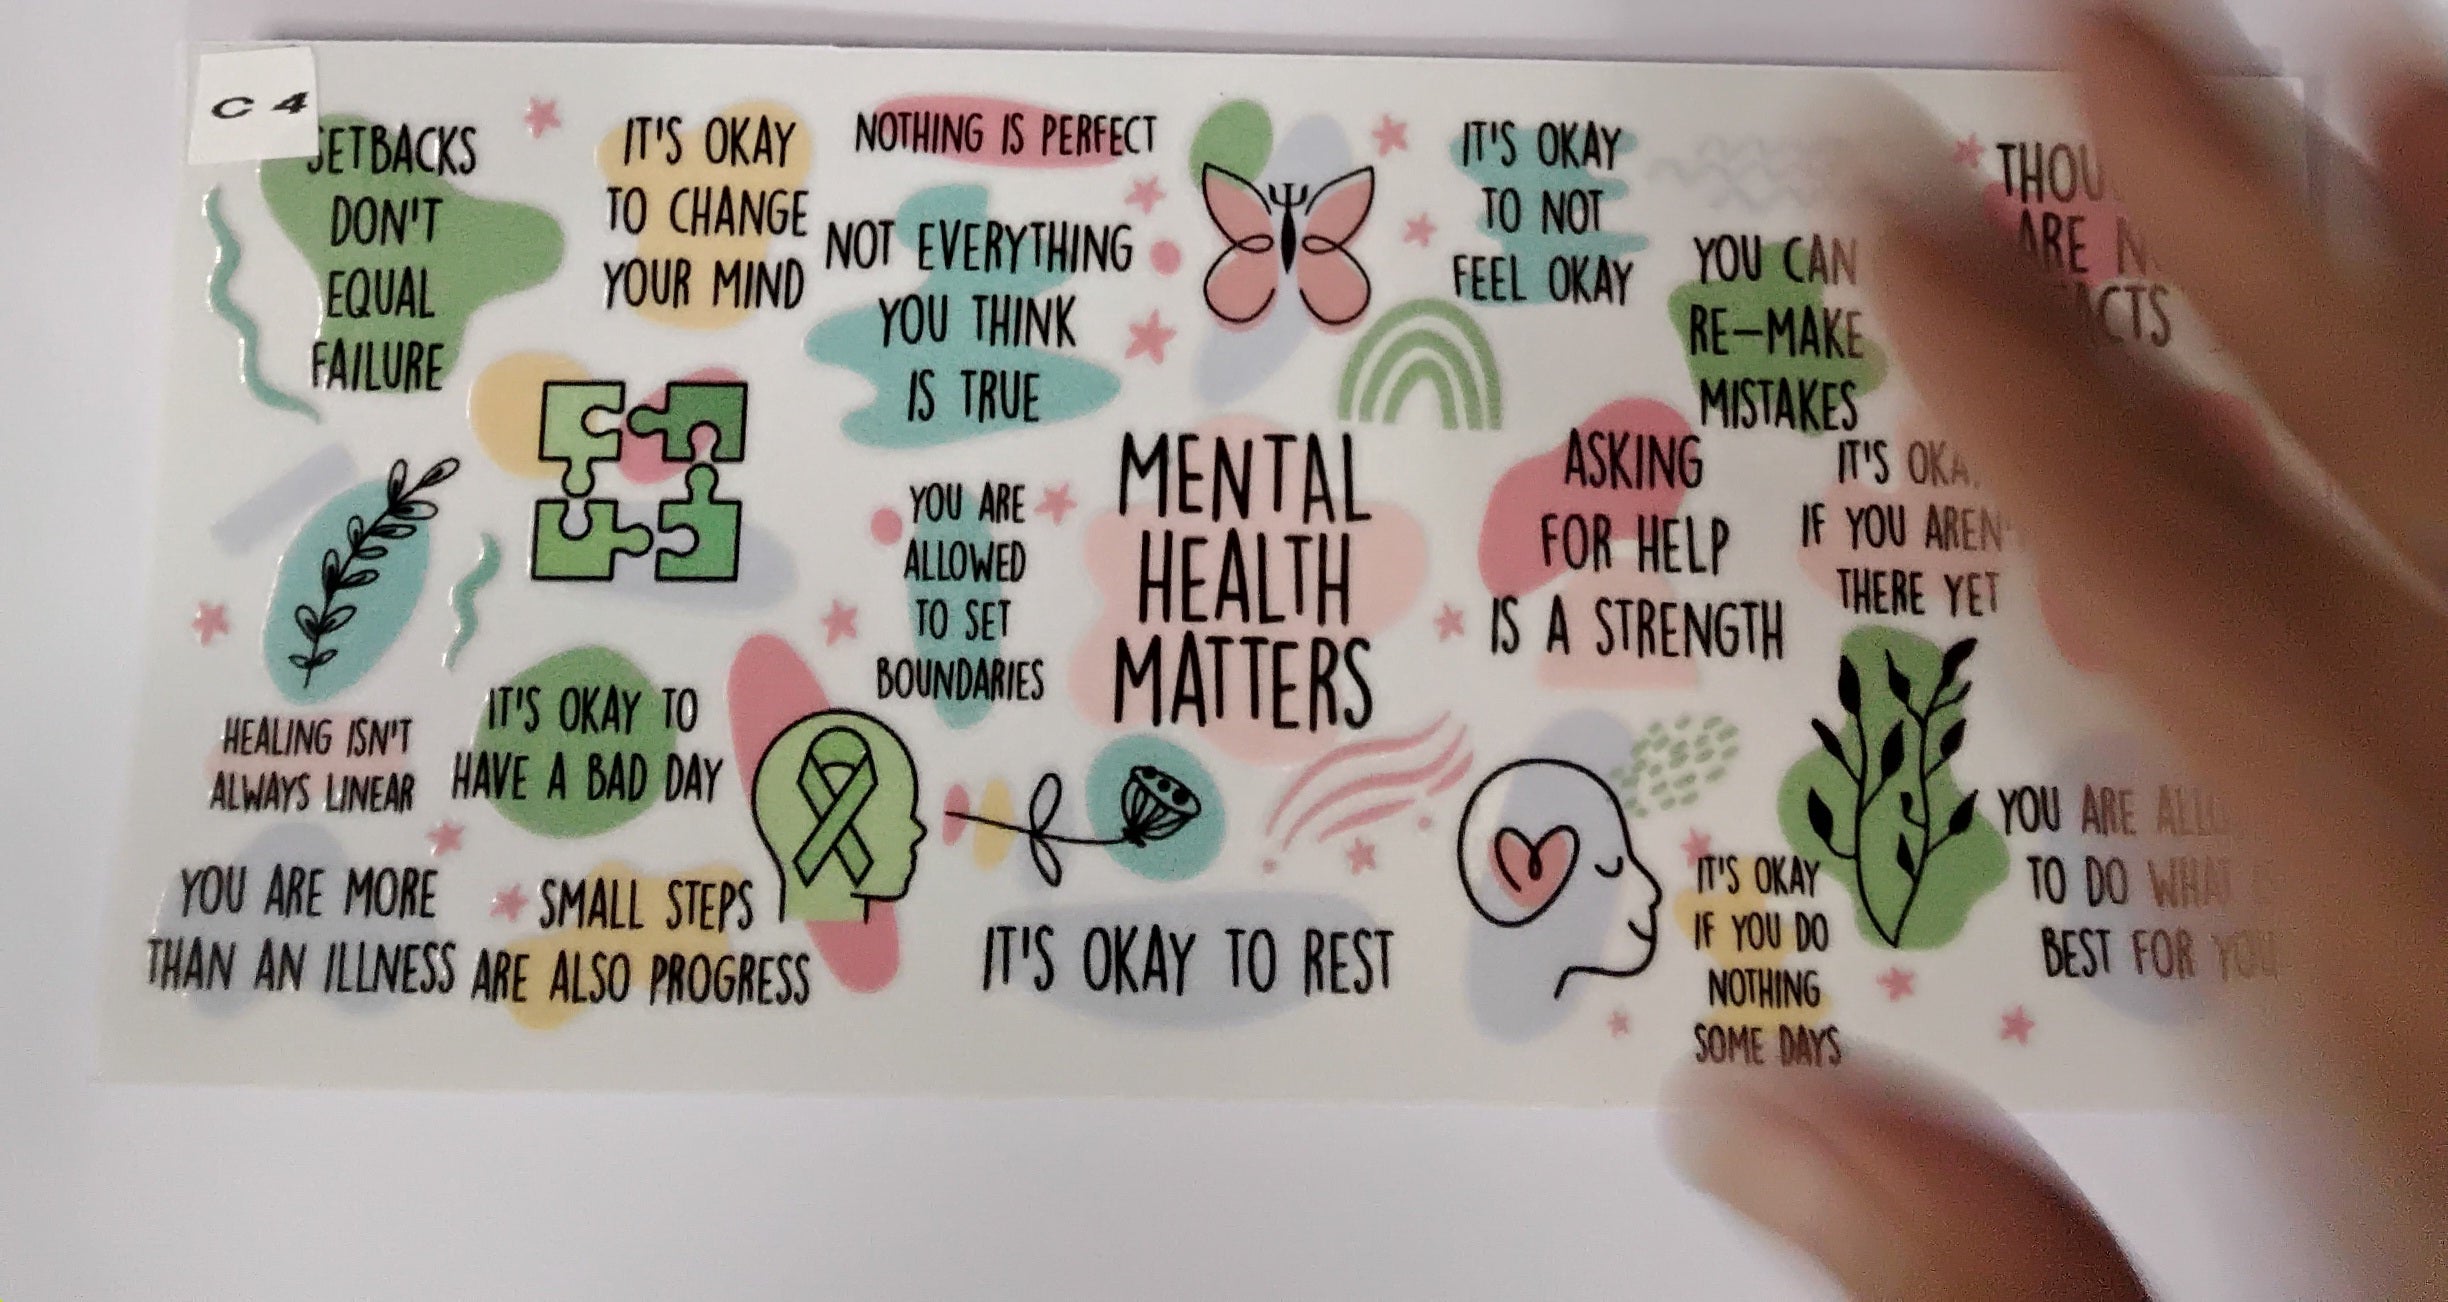 C 4
SETBACKS
DON'T
EQUAL
FAILURE
IT'S OKAY
TO CHANGE
YOUR MIND
NOTHING IS PERFECT
NOT EVERYTHING
YOU THINK
IS TRUE
IT'S OKAY
TO NOT
FEEL OKAY
YOU CAN
RE-MAKE
MISTAKES
ARE
YOU ARE
ALLOWED
TO SET
BOUNDARIES
MENTAL
HEALTH
MATTERS
ASKING
FOR HELP
IS A STRENGTH
IT'S
IF YOU
THERE YET
HEALING ISN'T
ALWAYS LINEAR
IT'S OKAY TO
HAVE A BAD DAY
YOU ARE MORE
THAN AN ILLNESS
SMALL STEPS
ARE ALSO PROGRESS
IT'S OKAY TO REST
IT'S OKAY
IF YOU DO
NOTHING
SOME DAYS
YOU ARE
TO DO WHAT
BEST FOR YOU